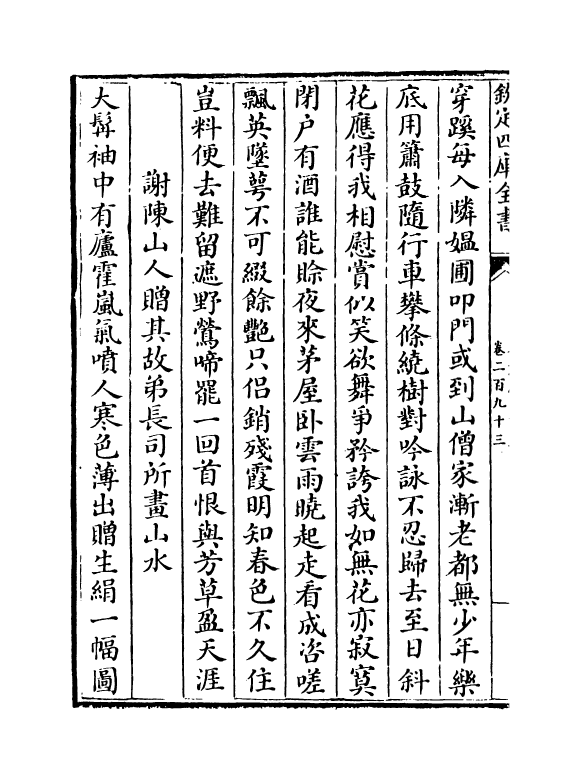 欽定四庫全書
卷二百九十三
穿蹊每入隣媼圃叩門或到山僧家漸老都無少年樂
底用簫鼓隨行車攀條繞樹對吟詠不忍歸去至日斜
花應得我相慰賞似笑欲舞爭矜誇我如無花亦寂寞
閉户有酒誰能賒夜來茅屋卧雲雨曉起走看成咨嗟
飄英墜萼不可綴餘艷只侣銷殘霞明知春色不久住
豈料便去難留遮野鶯啼罷一回首恨與芳草盈天涯
謝陳山人贈其故弟長司所畫山水
大髯袖中有廬霍嵐氣噴人寒色薄出贈生絹一幅圖